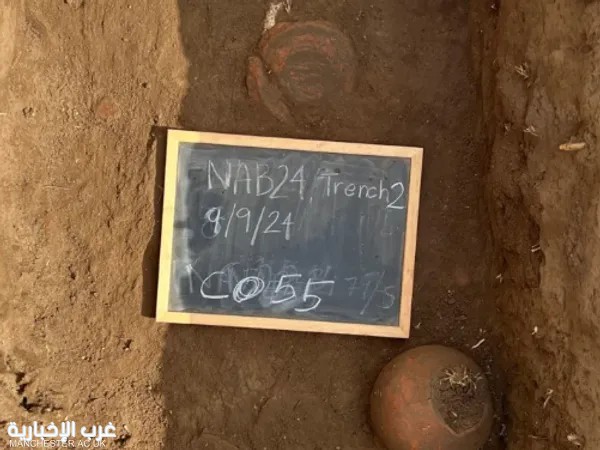 NAB24, Trench 2
9/9/24
C055
غرب الإخبارية
MANCHESTER.AC.UK